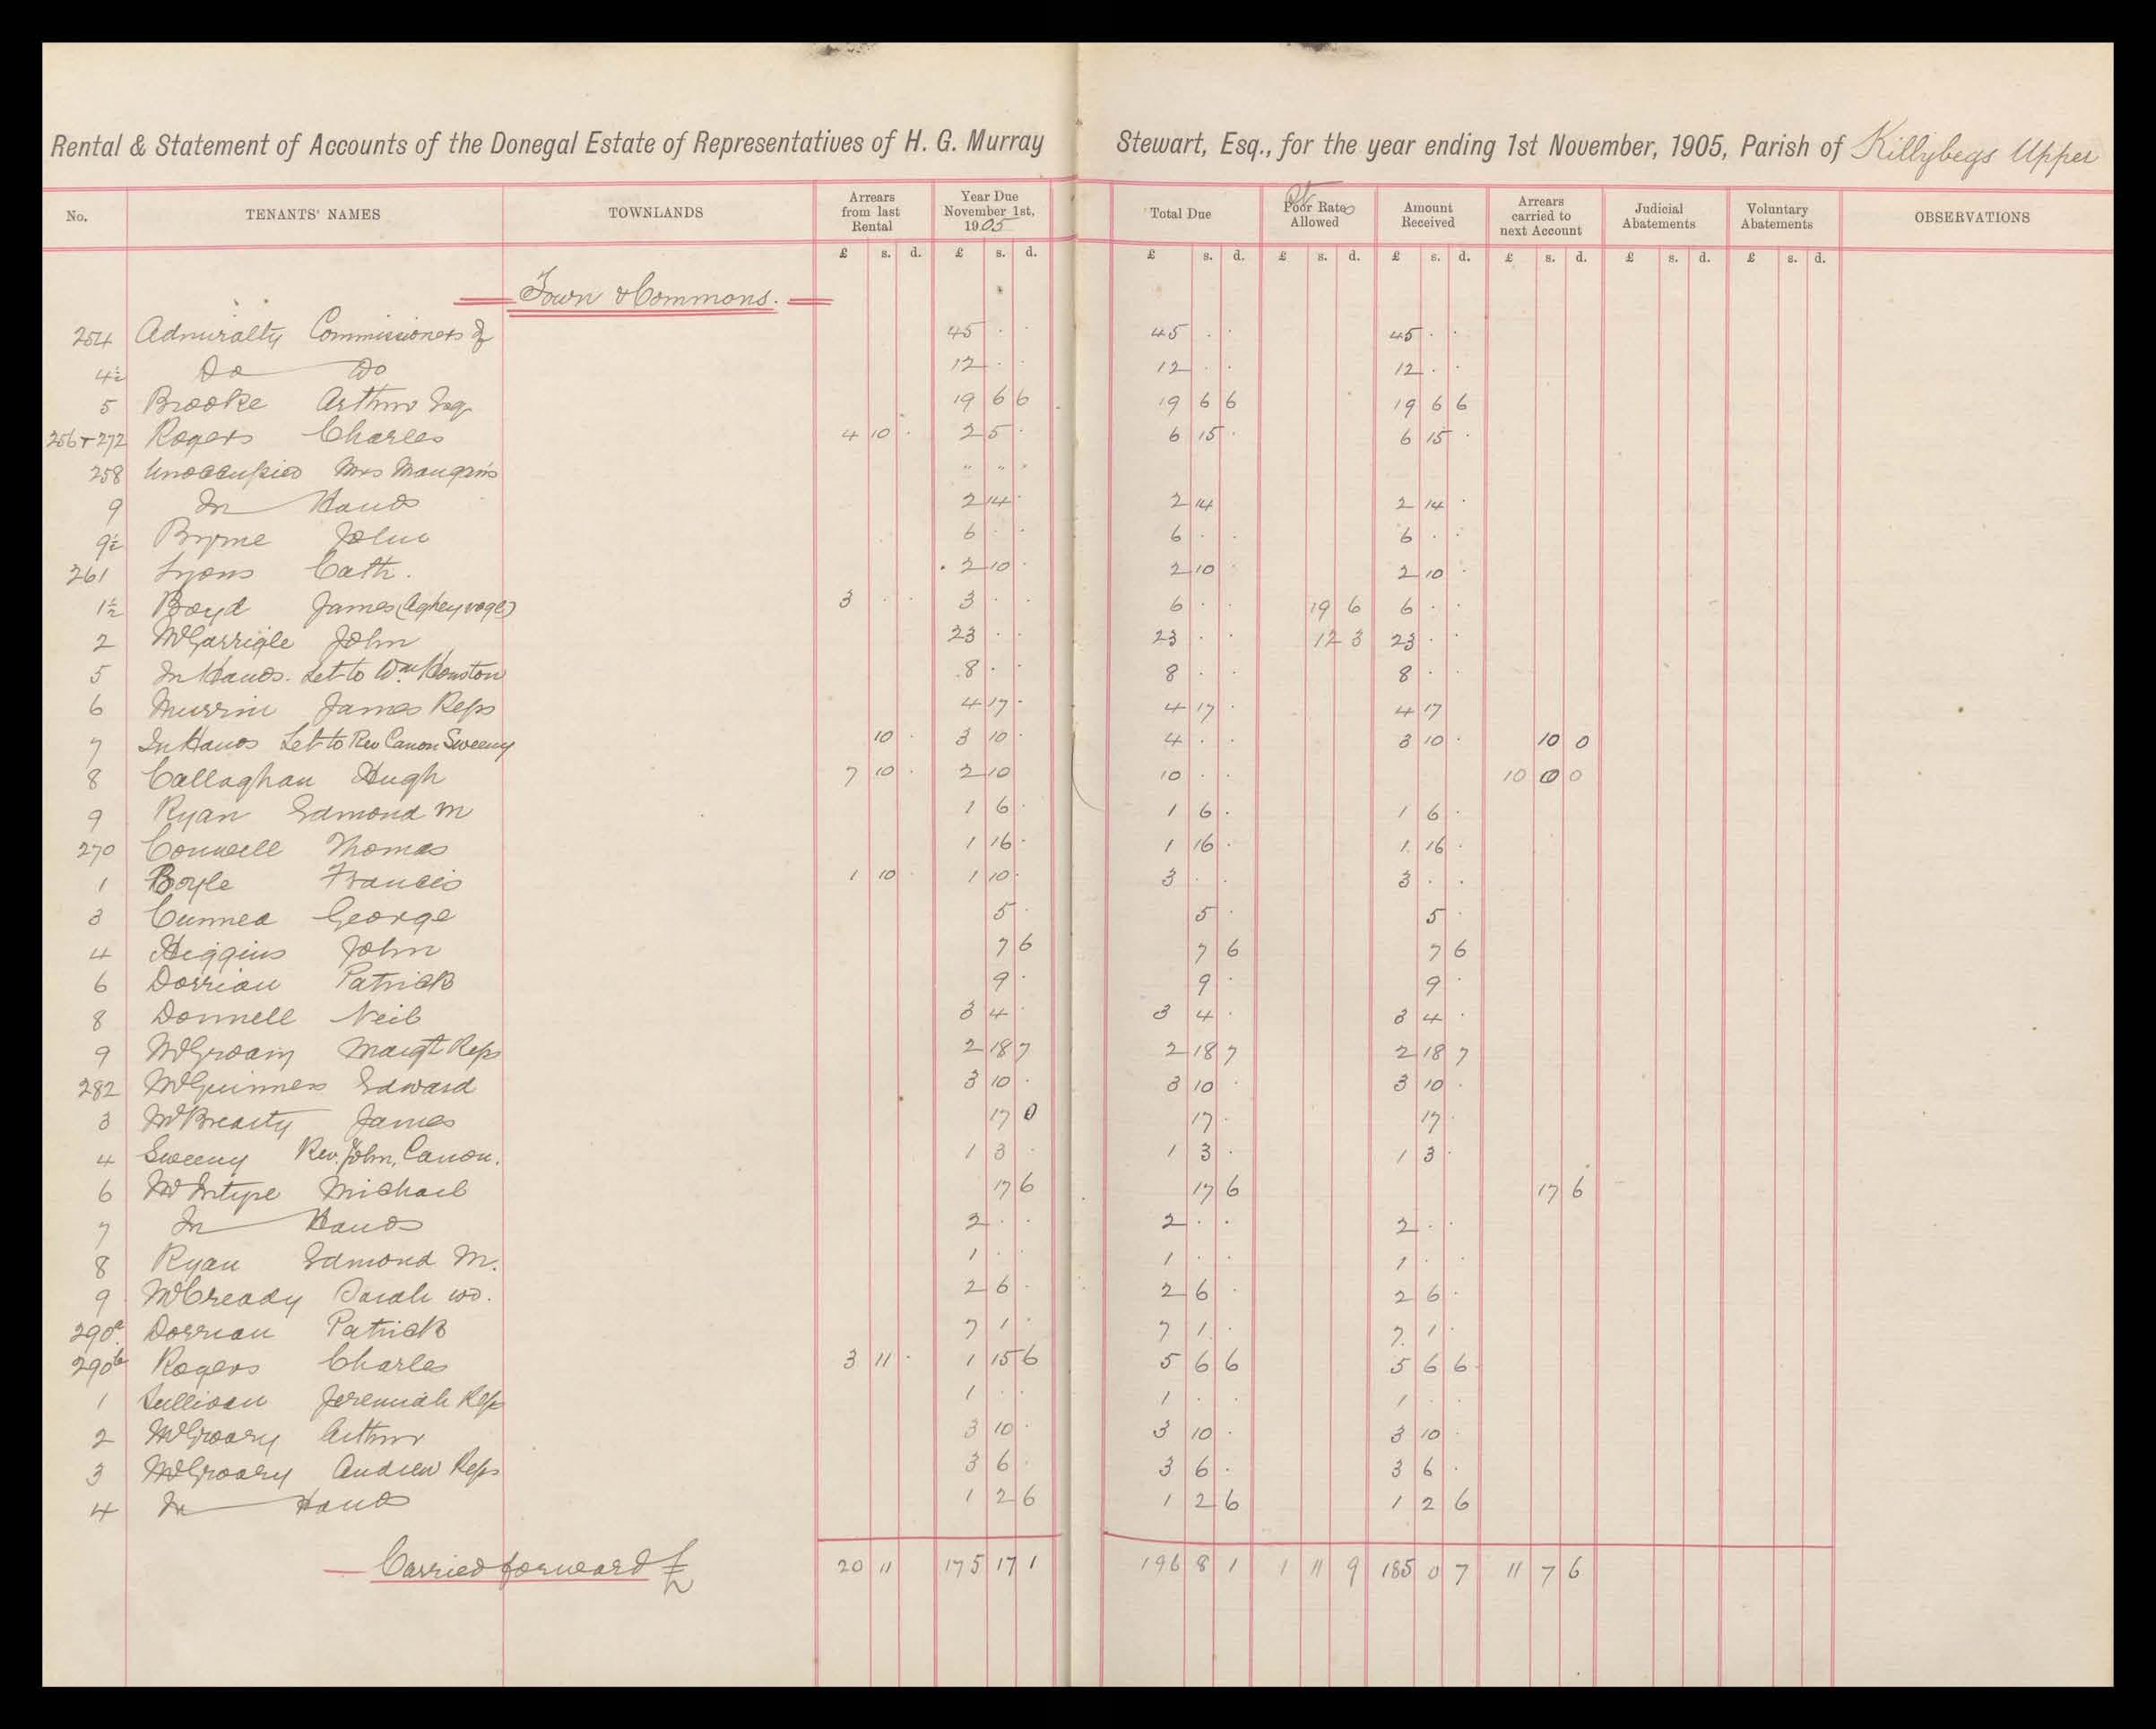 Rental & Statement of Accounts of the Donegal Estate of Representatives of H. G. Murray Stewart, Esq., for the year ending 1st November, 1905, Parish of Killybegs Upper
No. TENANTS' NAMES TOWNLANDS Arrears from last Rental Year Due November 1st, 1905 Total Due Poor Rates Allowed Amount Received Arrears carried to next Account Judicial Abatements Voluntary Abatements OBSERVATIONS
£ s. d. £ s. d. £ s. d. £ s. d. £ s. d. £ s. d. £ s. d. £ s. d.
Town & Commons.
254 Admiralty Commissioners of 45 . . 45 . . 45 . .
4½ Do Do 12 . . 12 . . 12 . .
5 Brooke Arthur Esq. 19 6 6 19 6 6 19 6 6
256+272 Rogers Charles 4 10 . 2 5 . 6 15 . 6 15 .
258 Unoccupied Mrs Mangrins " " "
9 In Hands 2 14 . 2 14 2 14 .
9½ Byrne John 6 . . 6 . . 6 . .
261 Lyons Cath. 2 10 . 2 10 . 2 10 .
1½ Boyd James (Agheyvoge) 3 . . 3 . . 6 . . 19 6 6 . .
2 McGarrigle John 23 . . 23 . . 12 3 23 . .
5 In Hands. Let to Wm. Houston 8 . . 8 . . 8 . .
6 Murrin James Reps 4 17 . 4 17 . 4 17
7 In Hands Let to Rev Canon Sweeny 10 . 3 10 . 4 . . 3 10 . 10 0
8 Callaghan Hugh 7 10 . 2 10 10 . . 10 0 0
9 Ryan Edmond M 1 6 . 1 6 . 1 6 .
270 Conwell Thomas 1 16 . 1 16 . 1 16 .
1 Boyle Francis 1 10 . 1 10 . 3 . . 3 . .
3 Cunnea George 5 . 5 . 5 .
4 Higgins John 7 6 7 6 7 6
6 Dorrian Patrick 9 . 9 . 9 .
8 Donnell Neil 3 4 . 3 4 . 3 4 .
9 McGroain Margt Reps 2 18 7 2 18 7 2 18 7
282 McGuinness Edward 3 10 . 3 10 . 3 10 .
3 McBrearty James 17 0 17 . 17 .
4 Sweeny Rev. John, Canon. 1 3 . 1 3 . 1 3 .
6 McIntyre Michael 17 6 17 6 17 6
7 In Hands 2 . . 2 . . 2 . .
8 Ryan Edmond M. 1 . . 1 . . 1 . .
9 McCready Sarah wd. 2 6 . 2 6 . 2 6 .
290a Dorrian Patrick 7 1 . 7 1 . 7 1 .
290b Rogers Charles 3 11 . 1 15 6 5 6 6 5 6 6
1 Sullivan Jeremiah Reps 1 . . 1 . . 1 . .
2 McGroary Arthur 3 10 . 3 10 . 3 10 .
3 McGroary Andrew Reps 3 6 . 3 6 . 3 6 .
4 In Hands 1 2 6 1 2 6 1 2 6
Carried forward £ 20 11 175 17 1 196 8 1 1 11 9 185 0 7 11 7 6